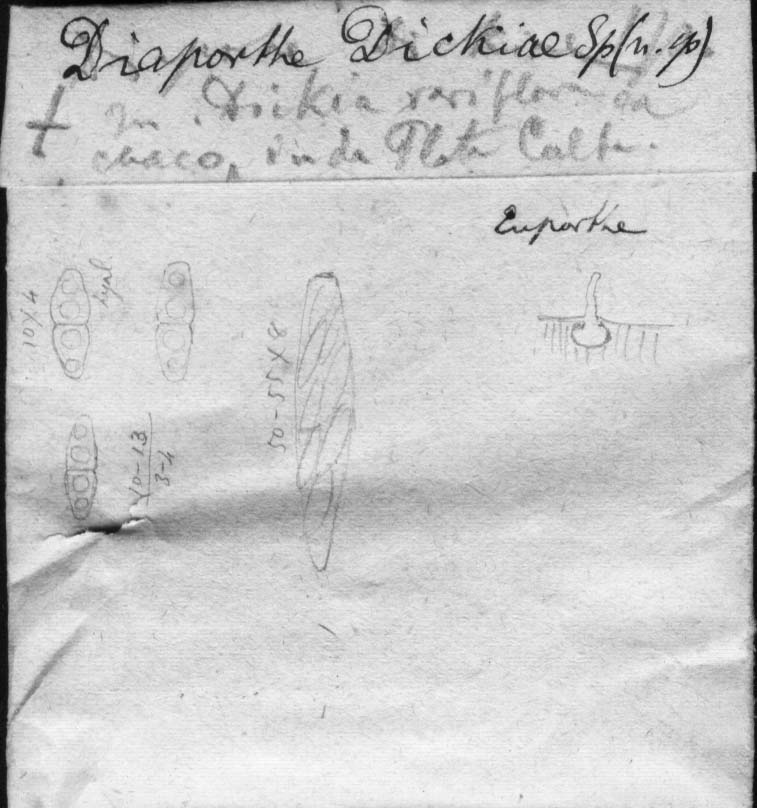 Diaporthe Dickiae Sp (n. sp)
+ in Dickia rariflora in
chaco, La Plata Culta.
Euporthe
10 X 4
hyal.
50-55 X 8
10-13
3-4